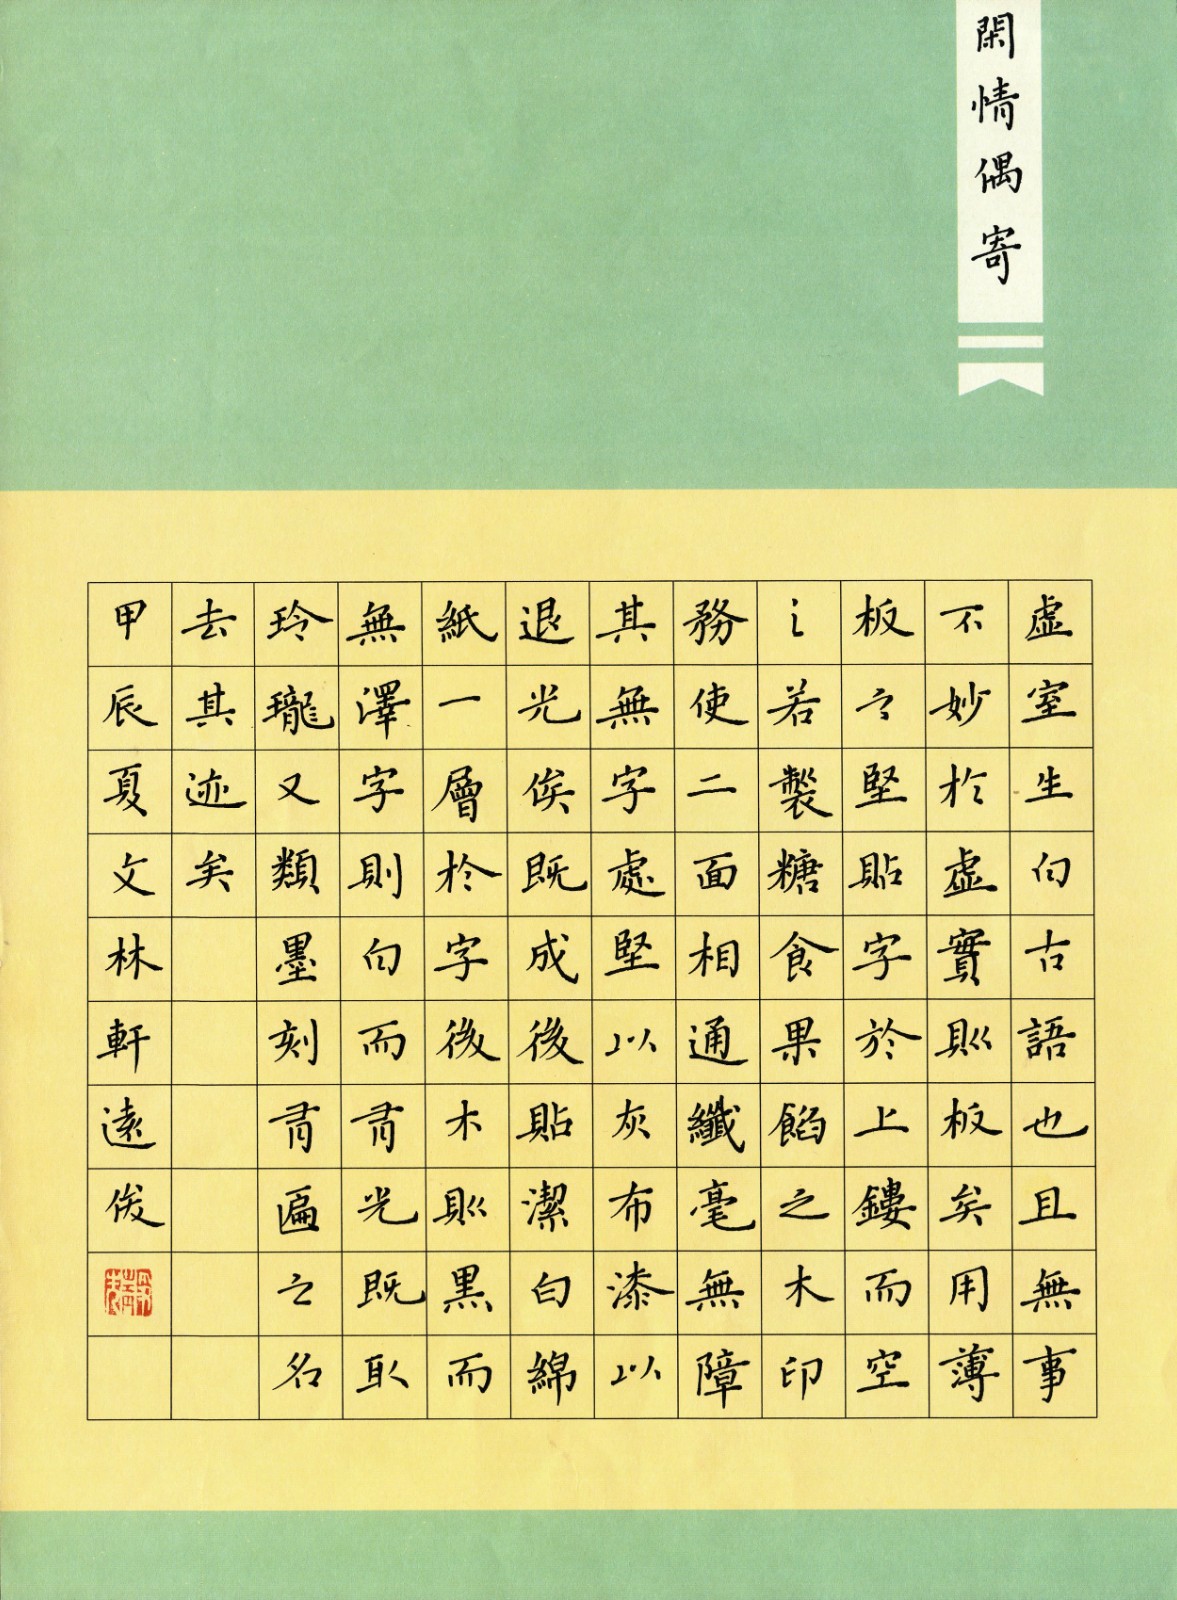 閑情偶寄
虛室生白古語也且無事
不妙於虛實則板矣用薄
板之堅貼字於上鏤而空
之若製糖食果餡之木印
務使二面相通纖毫無障
其無字處堅以灰布漆以
退光俟既成後貼潔白綿
紙一層於字後木則黑而
無澤字則白而有光既取
玲瓏又類墨刻有匾之名
去其迹矣
甲辰夏文林軒遠俊